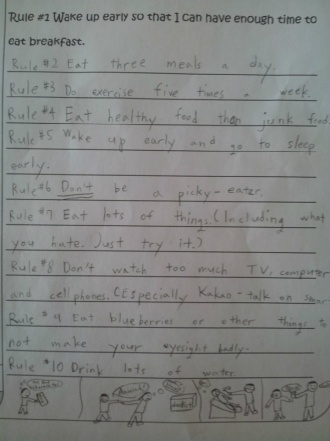 Rule #1 Wake up early so that I can have enough time to
eat breakfast.
Rule #2 Eat three meals a day.
Rule #3 Do exercise five times a week.
Rule #4 Eat healthy food then junk food.
Rule #5 Wake up early and go to sleep
early.
Rule #6 Don't be a picky-eater.
Rule #7 Eat lots of things. (Including what
you hate. Just try it.)
Rule #8 Don't watch too much TV, computer
and cell phones. (Especially Kakao-talk on
Rule #9 Eat blueberries or other things to
not make your eyesight badly.
Rule #10 Drink lots of water.